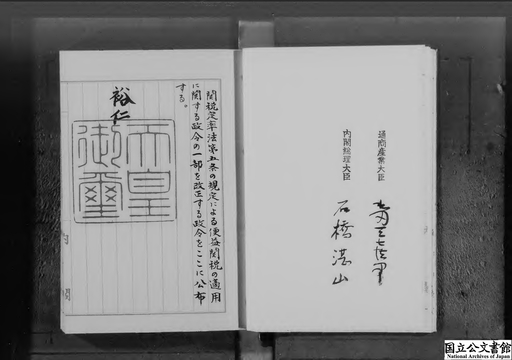 関税定率法第五条の規定による便益関税の適用
に関する政令の一部を改正する政令をここに公布
する。
裕仁
天皇
御璽
通商産業大臣
内閣総理大臣
石橋湛山
国立公文書館
National Archives of Japan